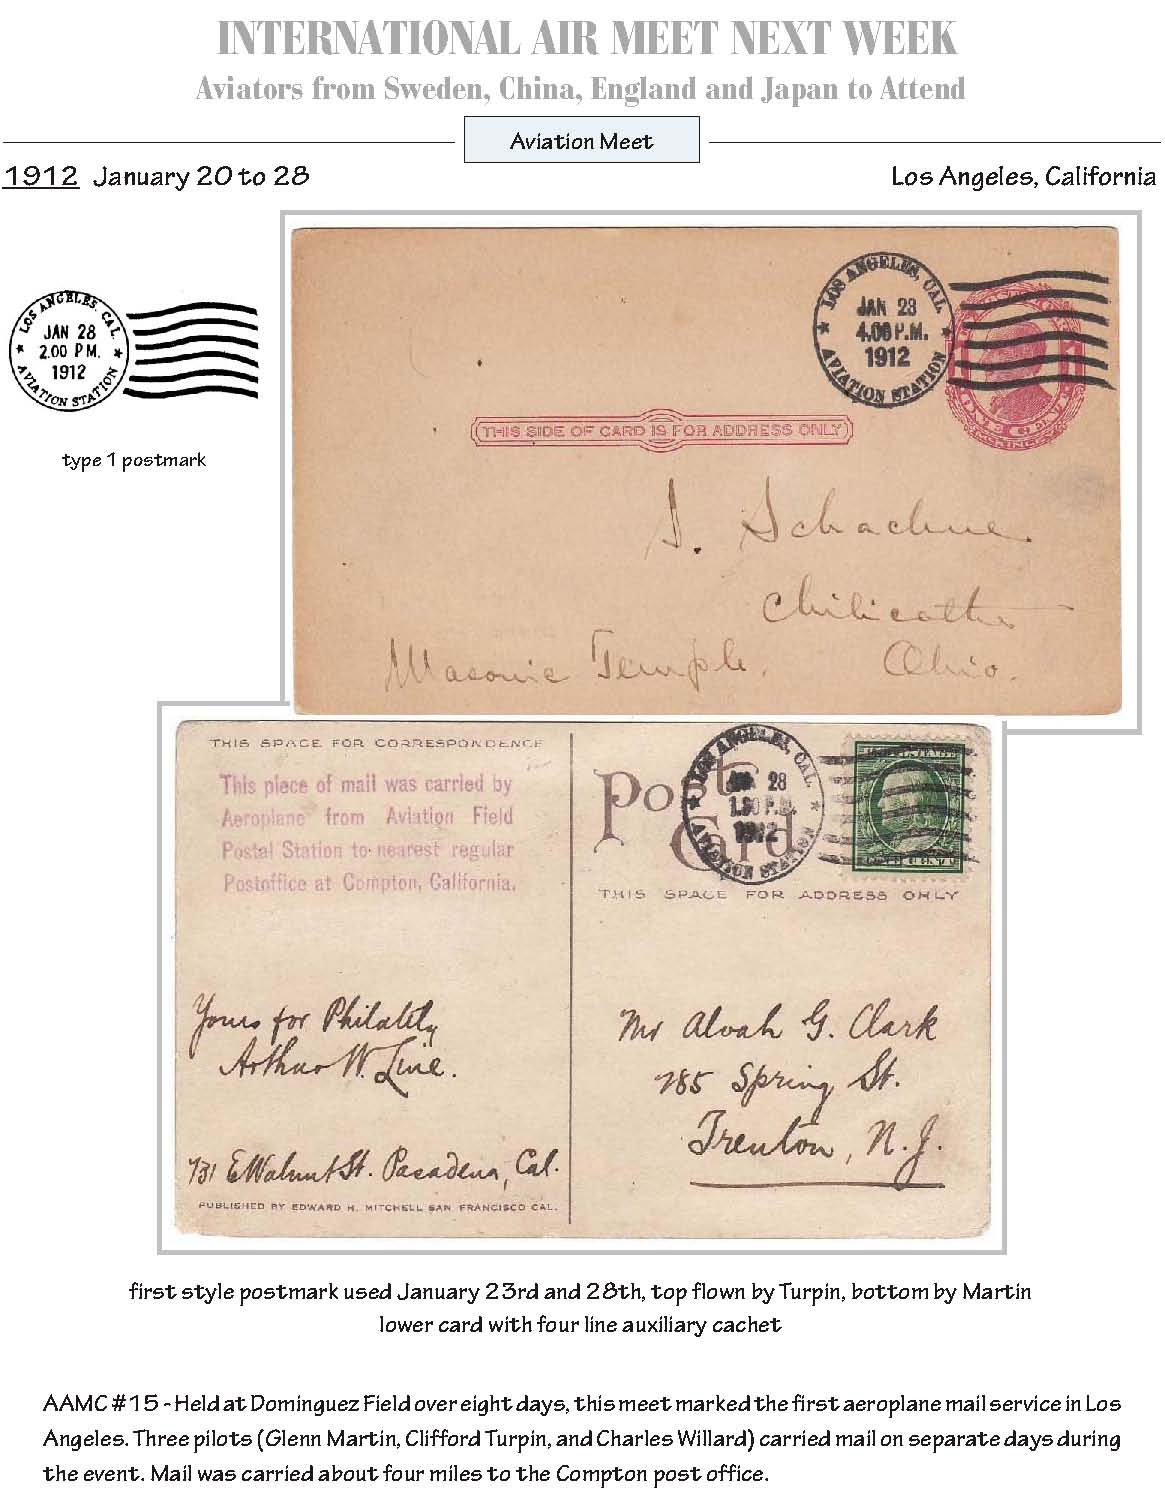 INTERNATIONAL AIR MEET NEXT WEEK
Aviators from Sweden, China, England and Japan to Attend
Aviation Meet
1912 January 20 to 28
Los Angeles, California
LOS ANGELES, CAL.
JAN 28
2.00 PM.
1912
AVIATION STATION
type 1 postmark
LOS ANGELES, CAL.
JAN 23
4.00 P.M.
1912
AVIATION STATION
THIS SIDE OF CARD IS FOR ADDRESS ONLY
Chilicothe
Masonic Temple, Ohio.
THIS SPACE FOR CORRESPONDENCE
This piece of mail was carried by
Aeroplane from Aviation Field
Postal Station to nearest regular
Postoffice at Compton, California.
Post
Card
LOS ANGELES, CAL.
JAN 28
1912
AVIATION STATION
THIS SPACE FOR ADDRESS ONLY
Yours for Philately
Arthur W. Line.
731 E Walnut St. Pasadena, Cal.
PUBLISHED BY EDWARD H. MITCHELL SAN FRANCISCO CAL.
Mr Alvah G. Clark
785 Spring St.
Trenton, N.J.
first style postmark used January 23rd and 28th, top flown by Turpin, bottom by Martin
lower card with four line auxiliary cachet
AAMC #15 - Held at Dominguez Field over eight days, this meet marked the first aeroplane mail service in Los
Angeles. Three pilots (Glenn Martin, Clifford Turpin, and Charles Willard) carried mail on separate days during
the event. Mail was carried about four miles to the Compton post office.